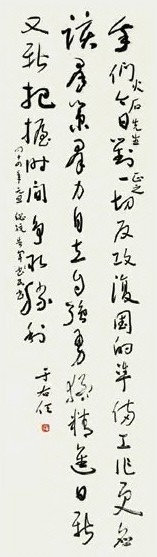 我們今日對一切反攻復國的準備工作更應
火石先生 正之
該羣策羣力自立自強勇猛精進日新
又新把握時間爭取勝利
年元旦 總統告軍民書
于右任